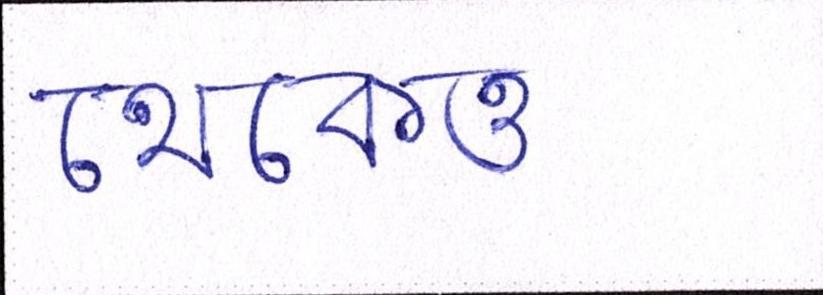 থেকেও